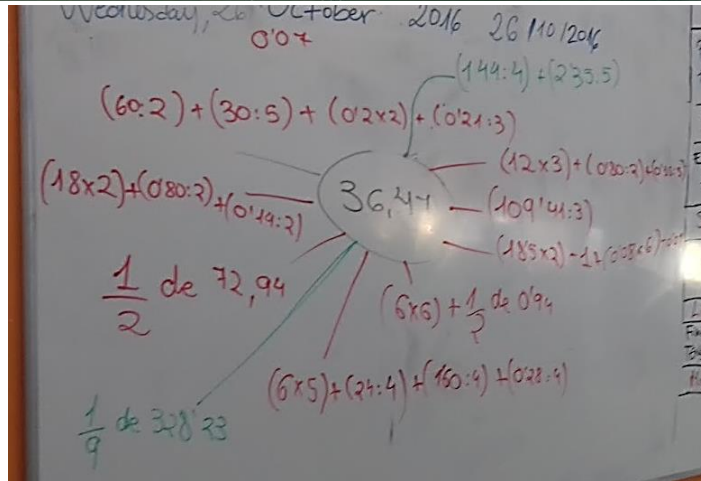 Wednesday, 26 October 2016 26/10/2016
0'07
(144:4)+(235:5)
(60:2)+(30:5)+(0'2x2)+(0'21:3)
(12x3)+(0'80:2)+
(18x2)+(0'80:2)+(0'14:2)
36,47
(109'41:3)
(18'5x2)-1+(0'08x6)
1/2 de 72,94
(6x6)+ de 0'94
(6x5)+(24:4)+(160:4)+(0'28:4)
1/9 de 328'23